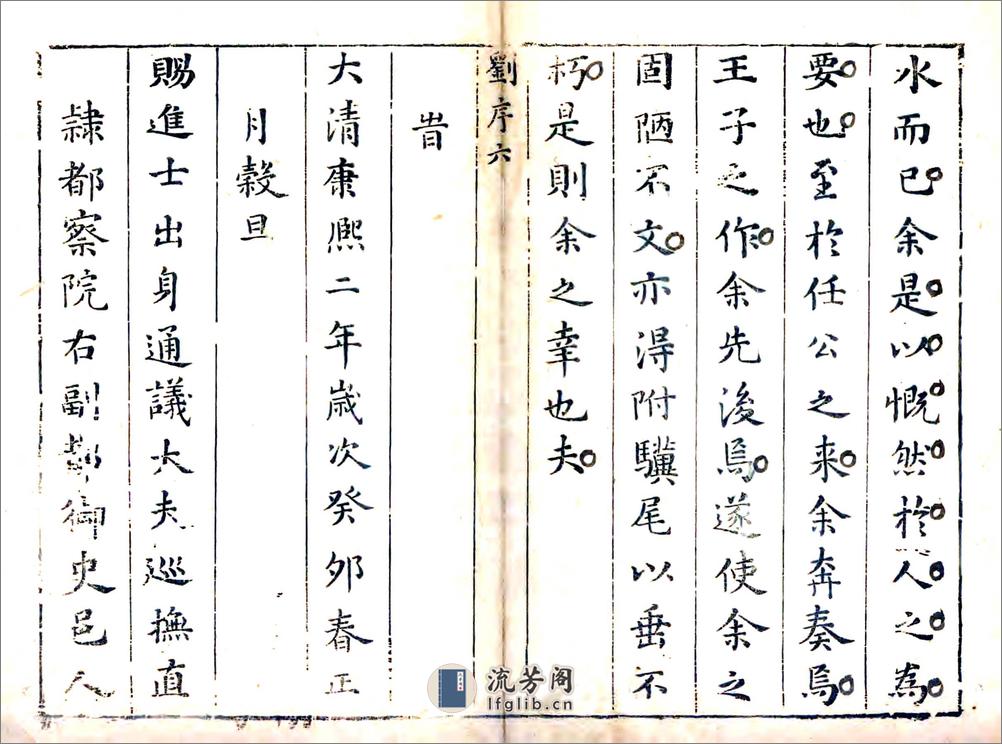 水而已余是以慨然於人之為
要也至於任公之来余奔奏焉
王子之作余先後焉遂使余之
固陋不文亦得附驥尾以垂不
朽是則余之幸也夫
劉序六
旹
大清康熙二年歲次癸卯春正
月穀旦
賜進士出身通議大夫巡撫直
隷都察院右副都御史邑人
流芳阁
lfglib.cn